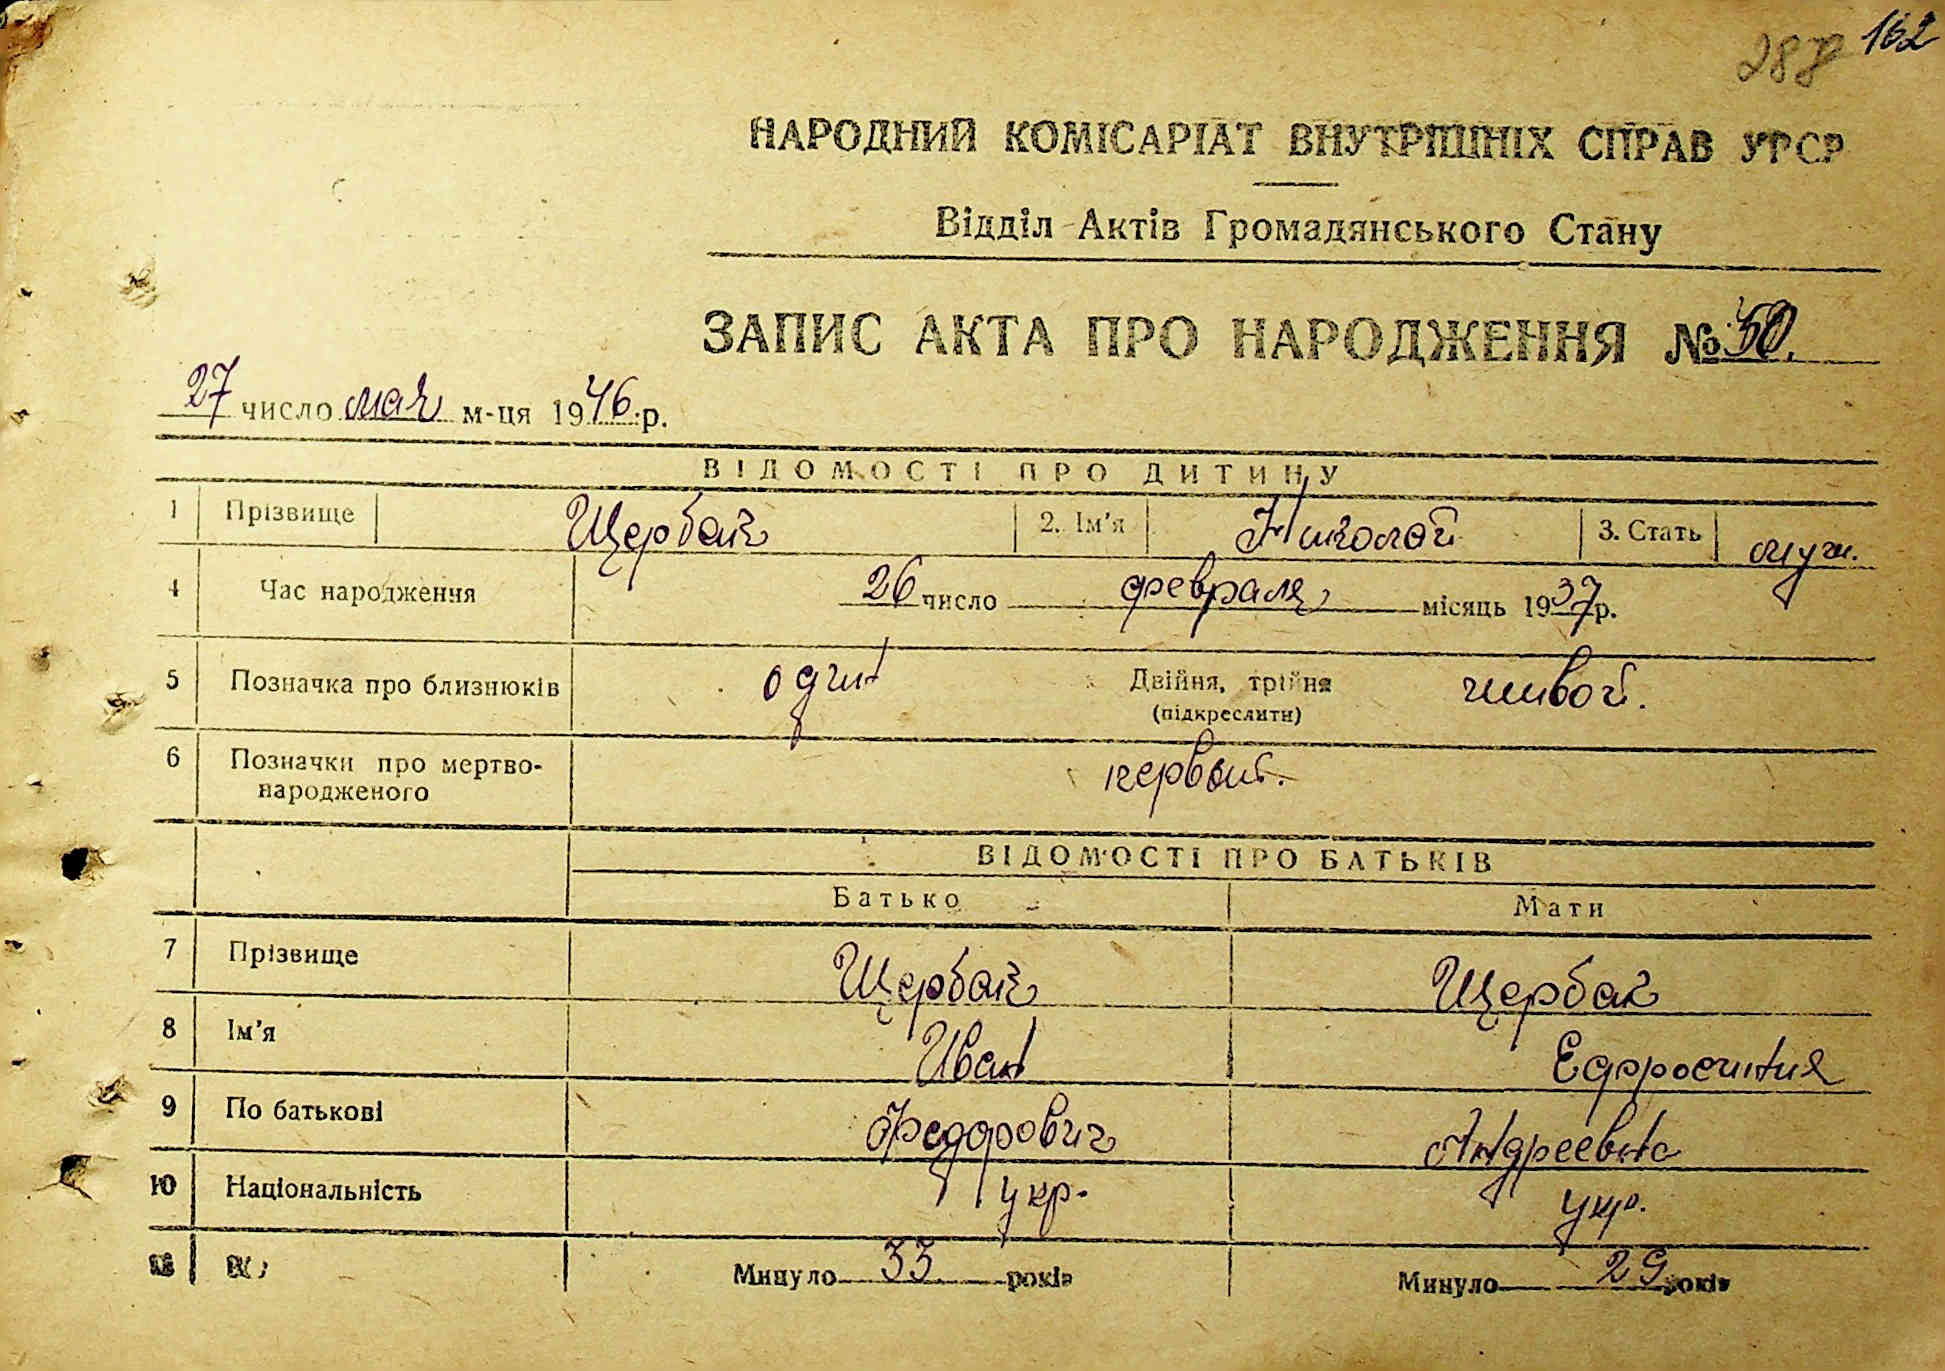 162
287
НАРОДНИЙ КОМІСАРІАТ ВНУТРІШНІХ СПРАВ УРСР
Відділ Актів Громадянського Стану
ЗАПИС АКТА ПРО НАРОДЖЕННЯ № 50.
27 число мая м-ця 1946 р.
ВІДОМОСТІ ПРО ДИТИНУ
1 Прізвище Щербак 2. Ім'я Николай 3. Стать муж.
4 Час народження 26 число февраля місяць 1937 р.
5 Позначка про близнюків один Двійня, трійня живой.
(підкреслити)
6 Позначки про мертво-
народженого первый.
ВІДОМОСТІ ПРО БАТЬКІВ
Батько Мати
7 Прізвище Щербак Щербак
8 Ім'я Иван Ефросиния
9 По батькові Федорович Андреевна
10 Національність укр. укр.
Минуло 33 років Минуло 29 років